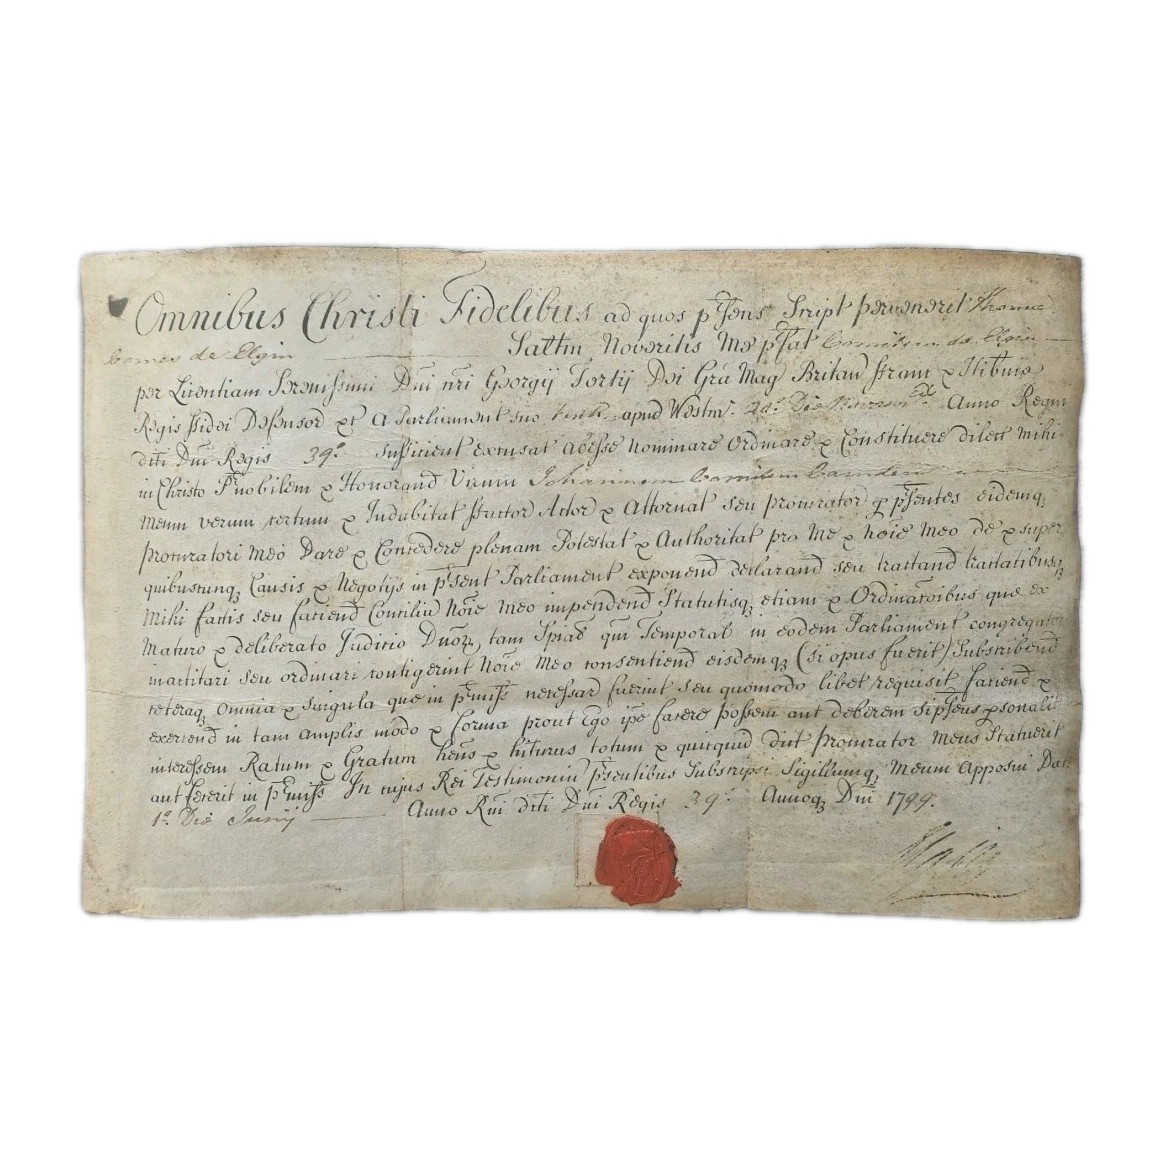 Omnibus Christi Fidelibus ad quos p'sens Script pervenerit Thomas
Comes de Elgin Saltm Noveritis Me p'fat Comitem de Elgin
per Licentiam Serenissimi Dni nri Georgij Tertij Dei Gra Mag Britan ffran & Hibnie
Regis ffidei Defensor &t A Parliament suo tent apud Westm. Die Anno Regni
dicti Dni Regis 39.o sufficient excusat abesse Nominare Ordinare & Constituere dilect mihi
in Christo P'nobilem & Honorand Virum Johannem Comitem Camden
Meum verum certum & Indubitat ffactor Actor & Attornat seu Procurator p p'sentes eidemq
Procuratori Meo Dare & Concedere plenam Potestat & Authoritat pro Me & Noie Meo de & super
quibuscunq Causis & Negotijs in p'sent Parliament exponend declarand seu tractand tractatibusq
Mihi factis seu faciend Conciliu Noie Meo impendend Statutisq etiam & Ordinacoibus que ex
Maturo & deliberato Judicio Dnoz tam Spial qm Temporal in eodem Parliament congregat
inactitari seu ordinari contigerint Noie Meo consentiend eisdemq (si opus fuerit) Subscribend
ceteraq Omnia & Singula que in p'miss necessar fuerint seu quomodo libet requisit faciend &
exercend in tam amplis modo & forma prout Ego ipe facere possem aut deberem si p'sens p'sonalit
interessem Ratum & Gratum hens & hiturus totum & quicquid dict Procurator Meus Statuerit
aut fecerit in p'miss In cujus Rei Testimoniu p'sentibus Subscripsi Sigillumq Meum Apposui Dat
1.o Die Junij Anno Rni dicti Dni Regis 39.o Annoq Dni 1799.
Elgin